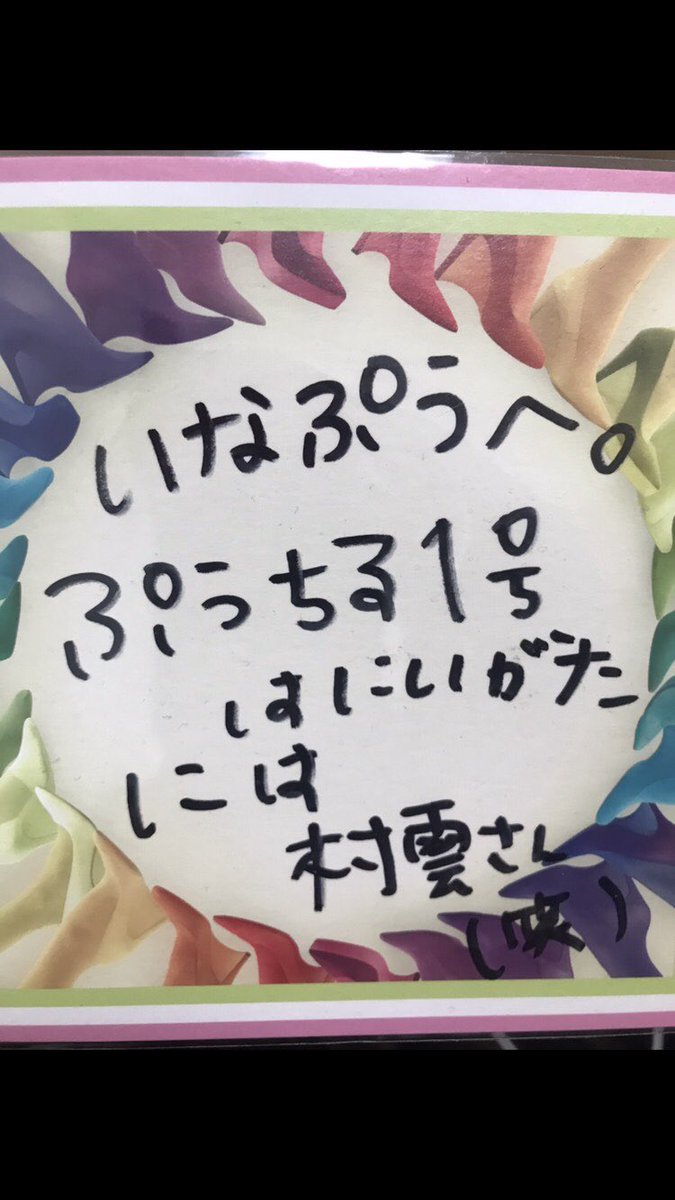 いなぷぅへ。
ぷぅちる1号
はにいがた
には
村雲さん
(笑)